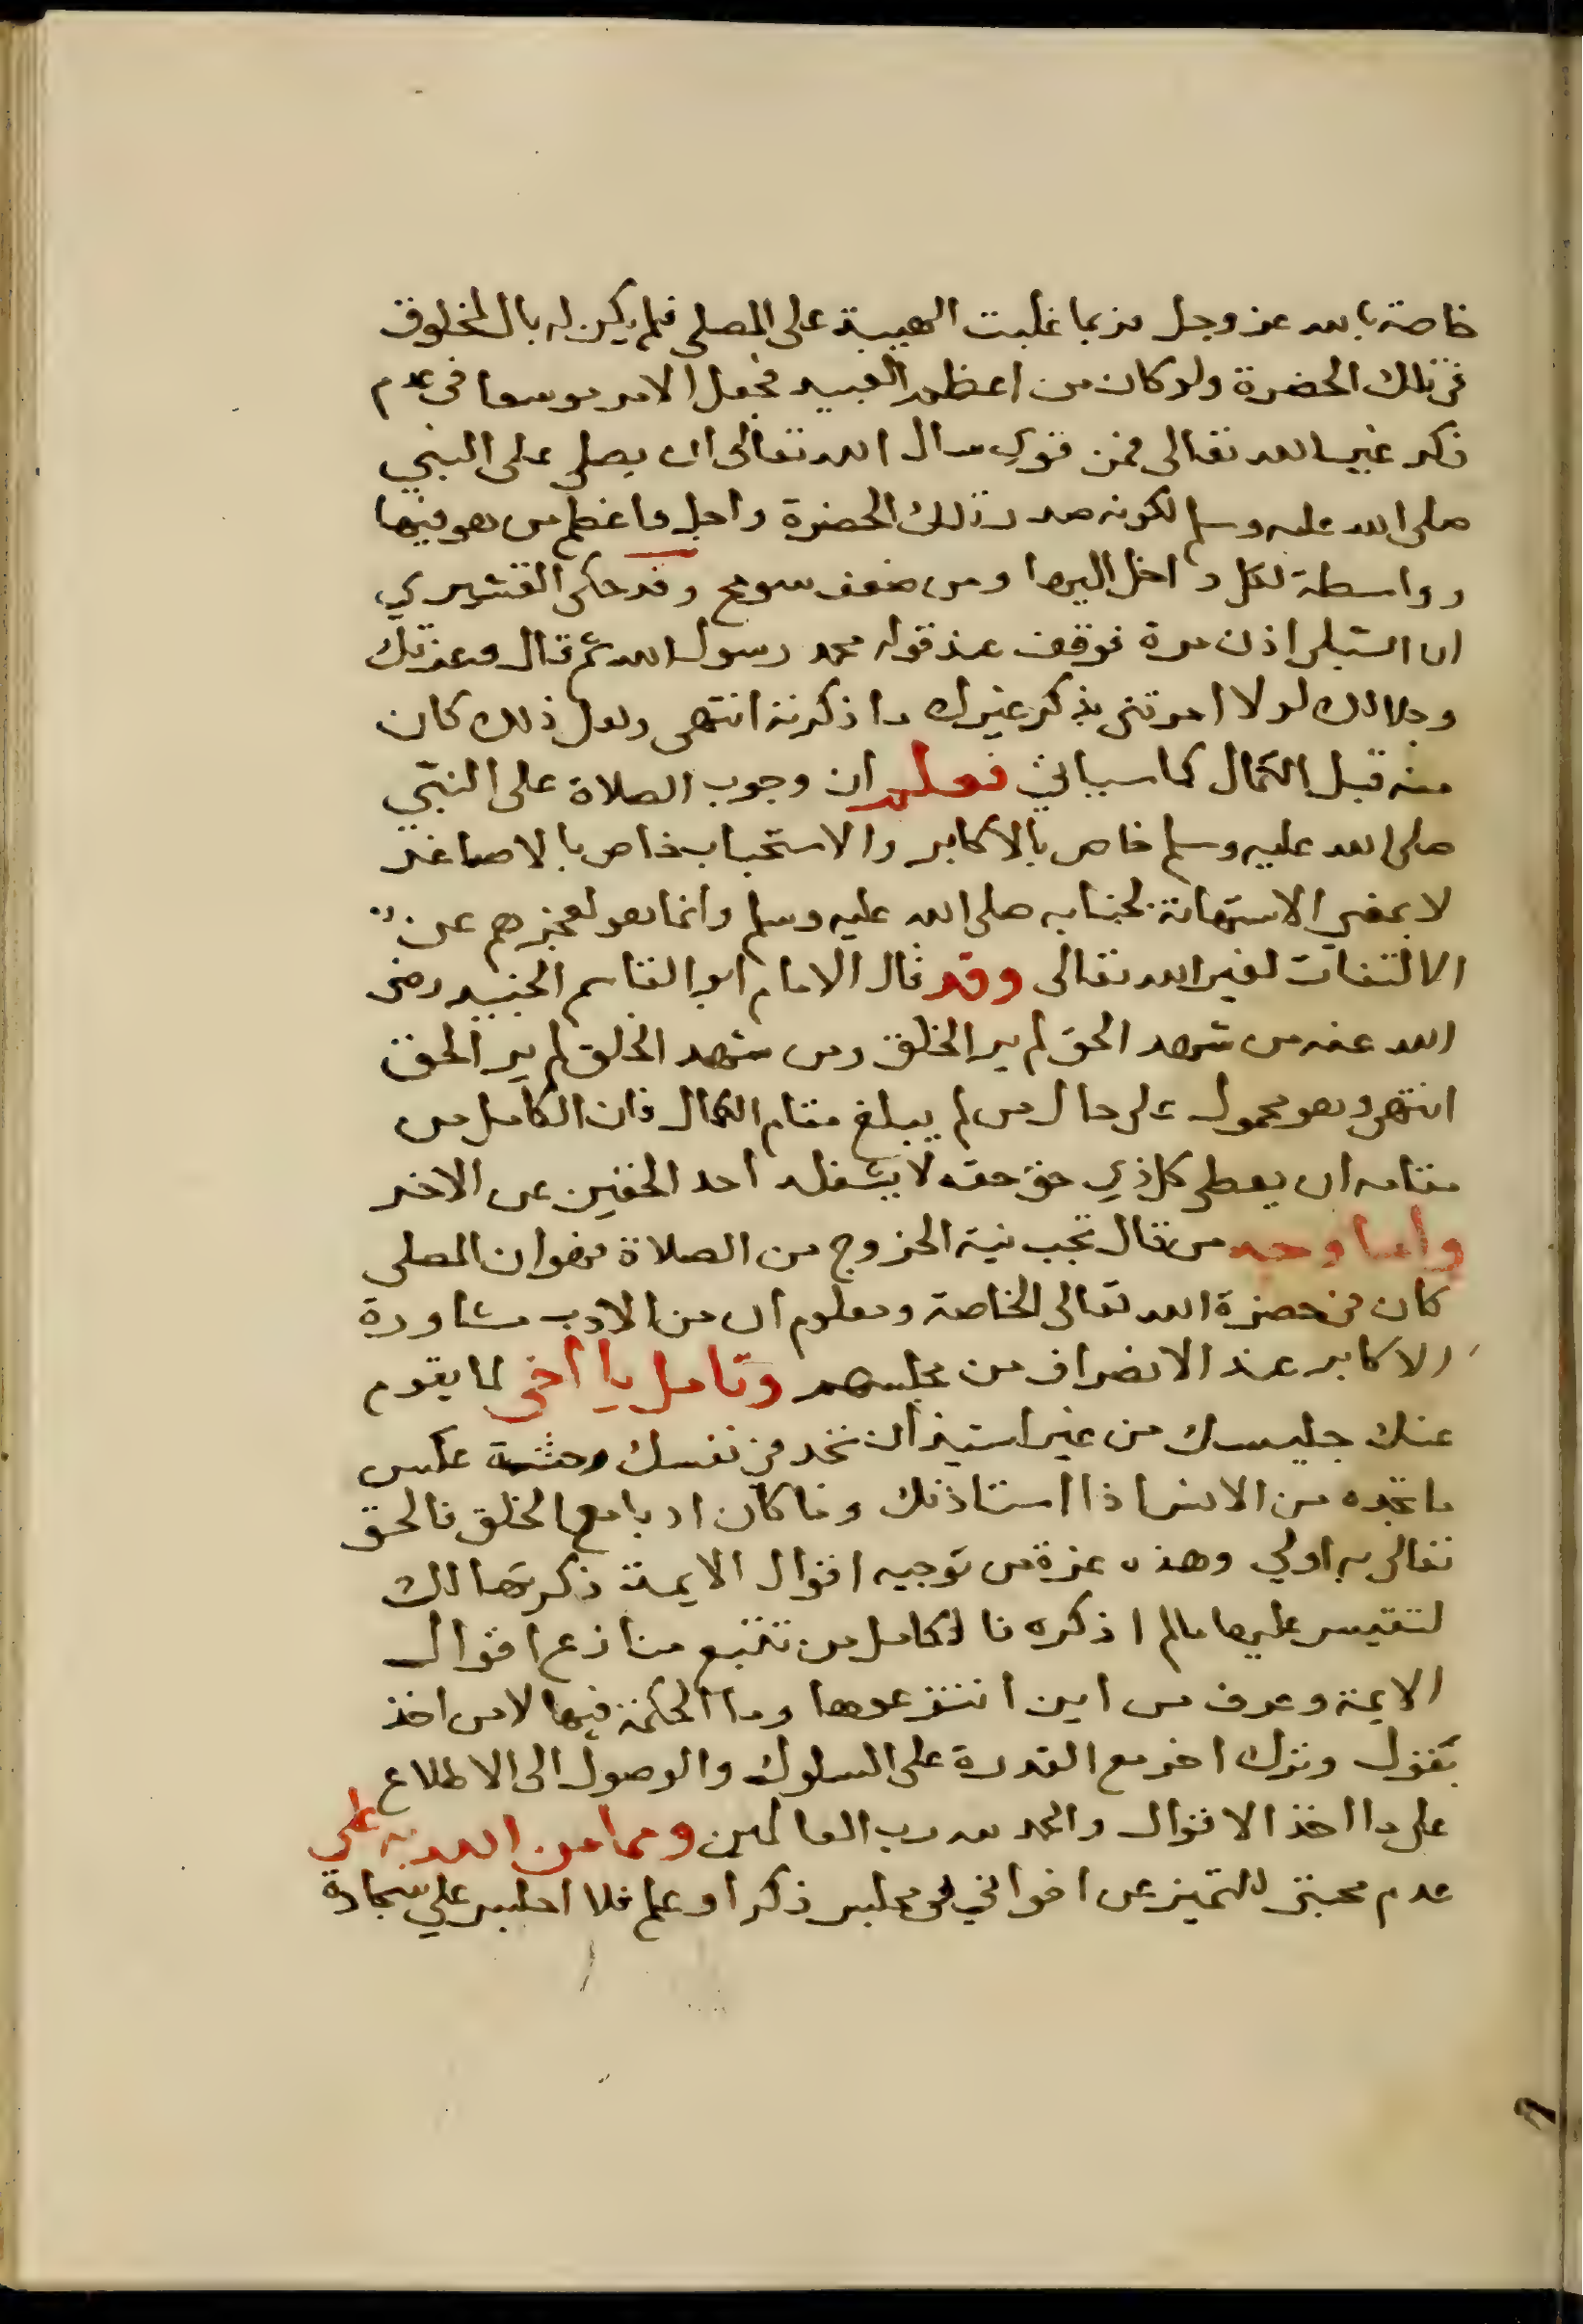 خاصة بالله عز وجل فربما غلبت الهيبة على المصلى فلم يكن له بال لمخلوق
فى تلك الحضرة ولو كان من اعظم العبيد فجعل الامر موسعا فى عدم
ذكر غير الله تعالى فمن قوي سال الله تعالى ان يصلي على النبي
صلى الله عليه وسلم لكونه صدر تلك الحضرة واجل واعظم من هو فيها
وواسطة لكل داخل اليها ومن ضعف سومح وقد حكى القشيري
ان الشبلي اذن مرة فوقف عند قوله محمد رسول الله ثم قال وعزتك
وجلالك لولا امرتنى بذكر غيرك ما ذكرته انتهى ولعل ذلك كان
منه قبل الكمال كما سياتي فعلم ان وجوب الصلاة على النبي
صلى الله عليه وسلم خاص بالاكابر والاستحباب خاص بالاصاغر
لا بمعني الاستهانة بجنابه صلى الله عليه وسلم وانما هو لعجزهم عن
الالتفات لغير الله تعالى وقد قال الامام ابو القاسم الجنيد رضى
الله عنه من شهد الحق لم ير الخلق ومن شهد الخلق لم ير الحق
انتهى وهو محمول على حال من لم يبلغ مقام الكمال فان الكامل من
مقامه ان يعطى كل ذي حق حقه لا يشغله احد الحقين عن الاخر
واما وجه من قال تجب نية الخروج من الصلاة فهو ان المصلى
كان فى حضرة الله تعالى الخاصة ومعلوم ان من الادب مشاورة
الاكابر عند الانصراف من مجلسهم وتامل يا اخى لما يقوم
عنك جليسك من غير استيذان تجد فى نفسك وحشة عكس
ما تجده من الانس اذا استاذنك وما كان ادبا مع الخلق فالحق
تعالى به اولي وهذه عزة من توجيه اقوال الايمة ذكرتها لك
لتقيس عليها مالم اذكره فالكامل من تتبع منازع اقوال
الايمة وعرف من اين انتزعوها وما الحكمة فيها لا من اخذ
بقول وترك اخر مع القدرة على السلوك والوصول الى الاطلاع
على ما اخذ الاقوال والحمد لله رب العالمين ومما من الله به على
عدم محبتى للتميز عن اخواني فى مجلس ذكر او علم فلا اجلس علي سجادة